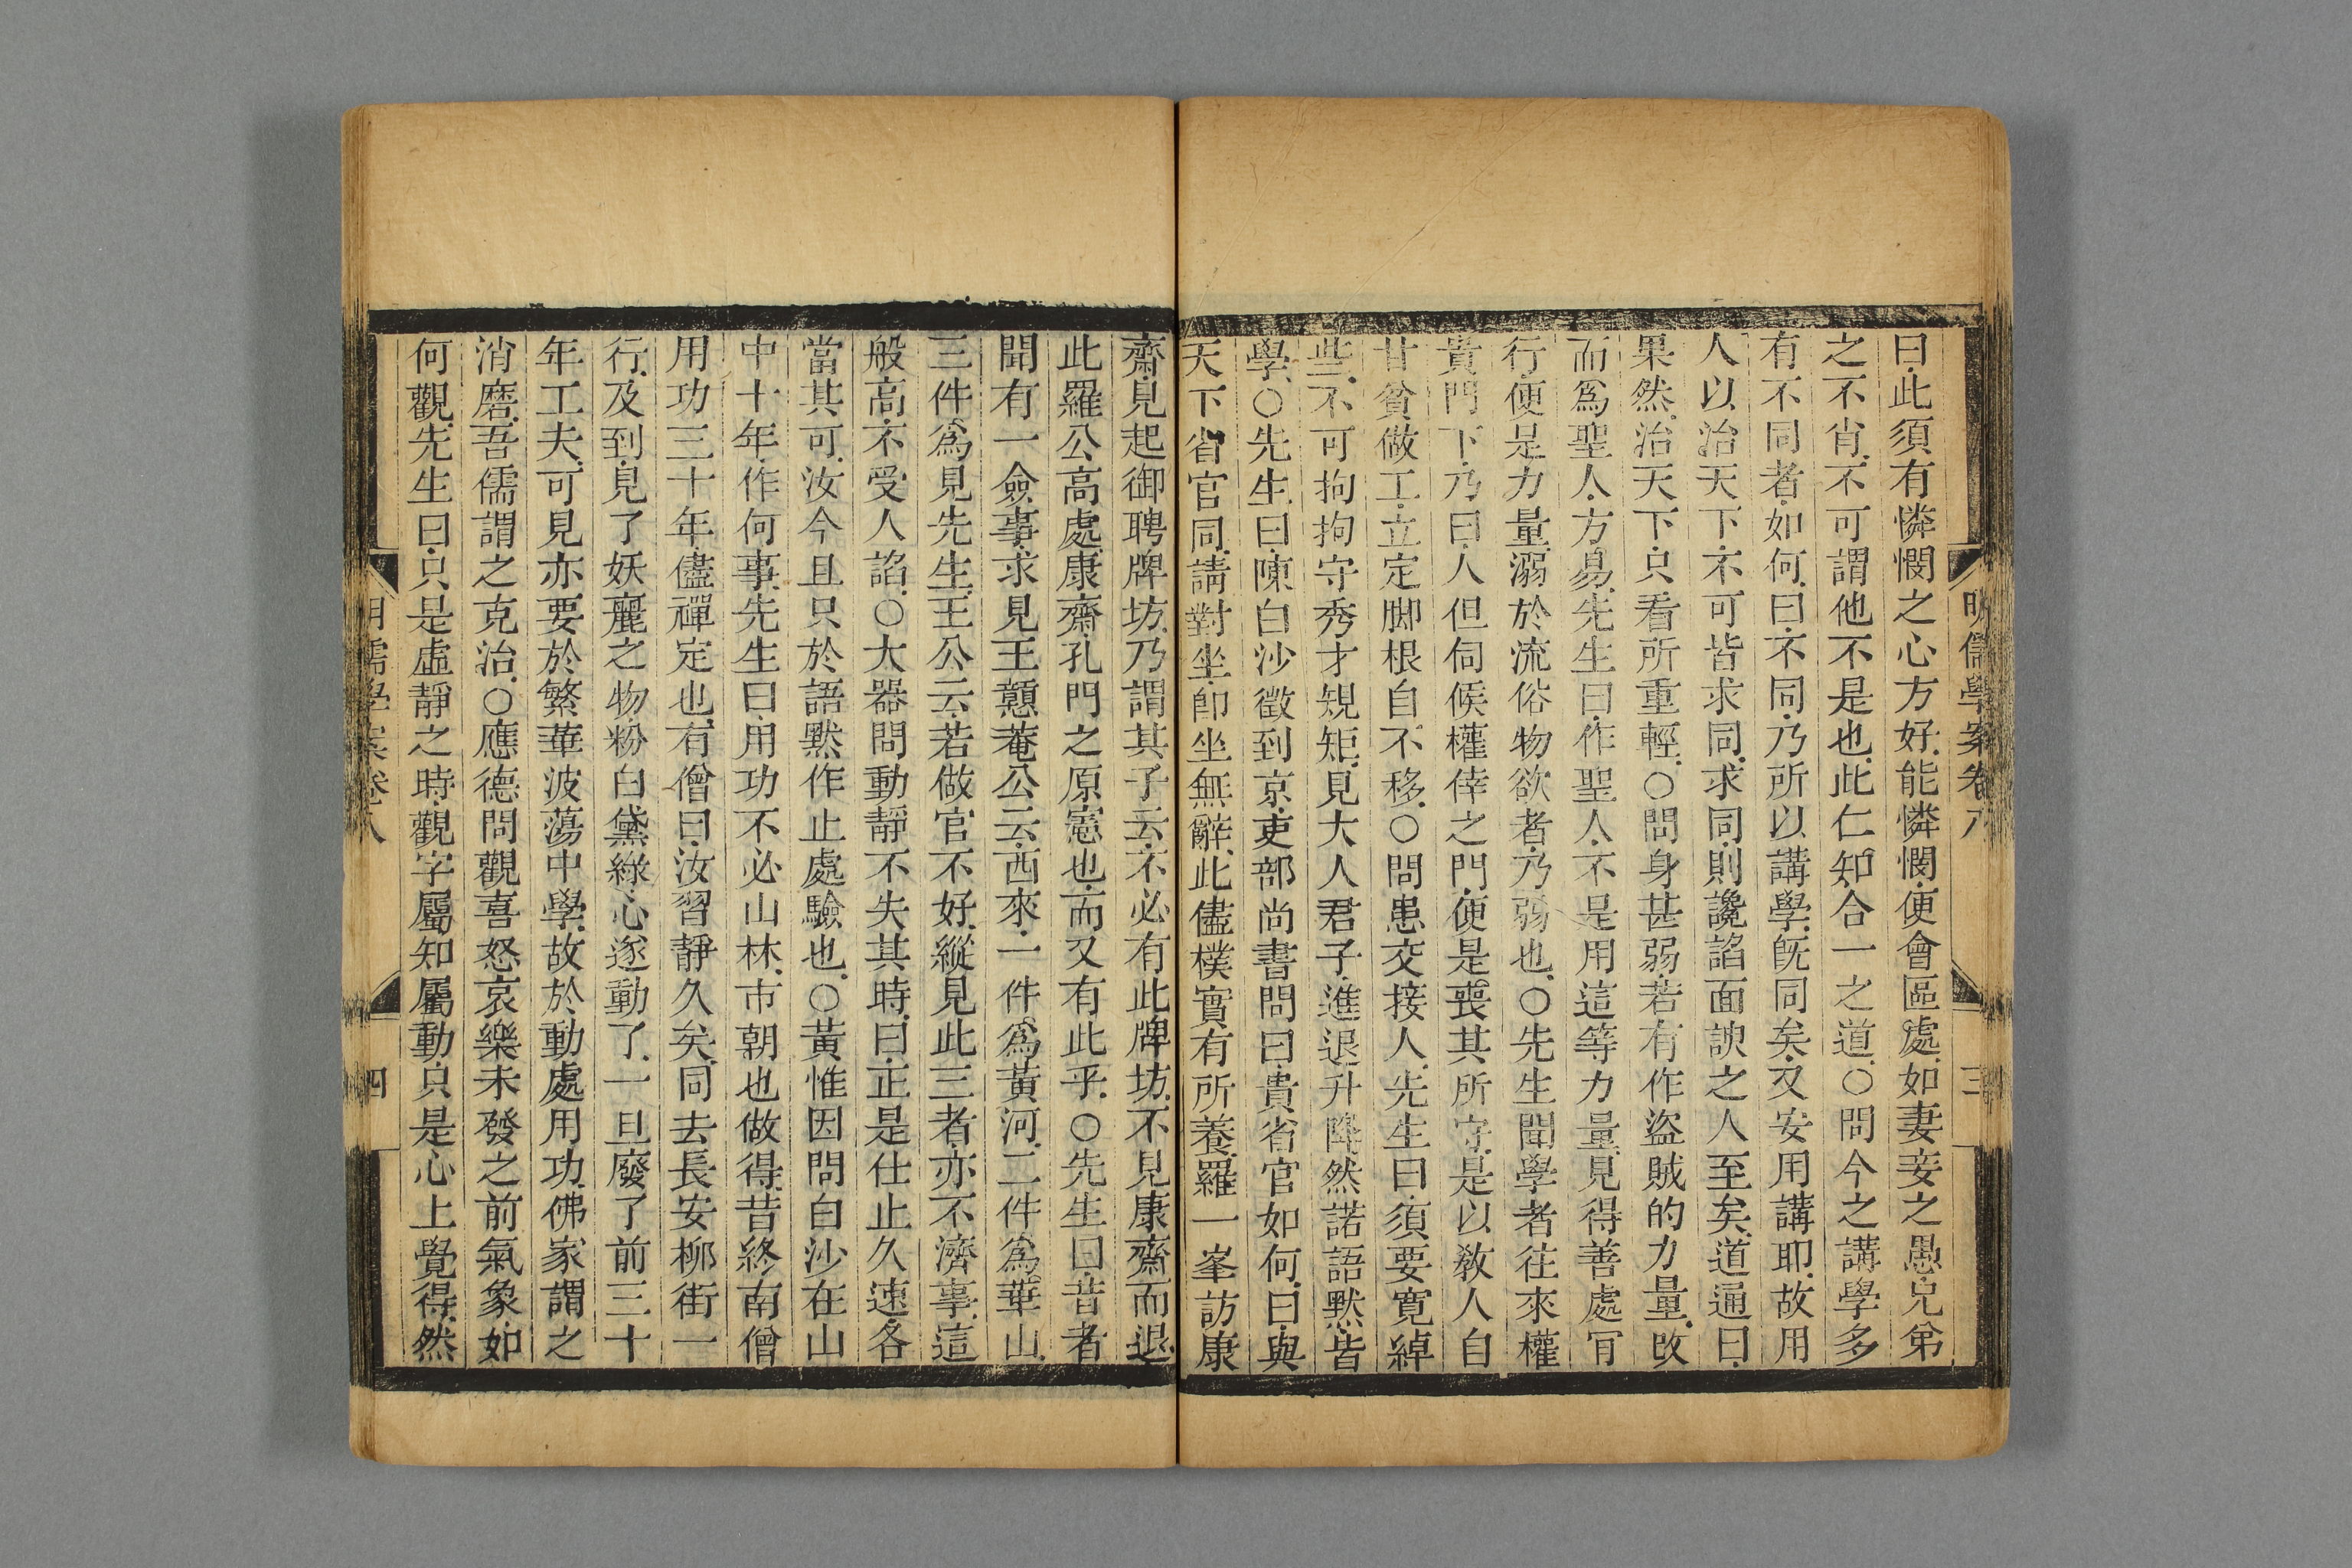 明儒學案卷八
三
曰此須有憐憫之心方好能憐憫便會區處如妻妾之愚兄弟
之不肖不可謂他不是也此仁知合一之道○問今之講學多
有不同者如何曰不同乃所以講學旣同矣又安用講耶故用
人以治天下不可皆求同求同則讒諂面諛之人至矣道通曰
果然治天下只看所重輕○問身甚弱若有作盜賊的力量改
而爲聖人方易先生曰作聖人不是用這等力量見得善處肎
行便是力量溺於流俗物欲者乃弱也○先生聞學者往來權
貴門下乃曰人但伺候權倖之門便是喪其所守是以敎人自
甘貧做工立定脚根自不移○問患交接人先生曰須要寬綽
些不可拘拘守秀才規矩見大人君子進退升降然諾語默皆
學○先生曰陳白沙徵到京吏部尚書問曰貴省官如何曰與
天下省官同請對坐卽坐無辭此儘樸實有所養羅一峯訪康
齋見起御聘牌坊乃謂其子云不必有此牌坊不見康齋而退
此羅公高處康齋孔門之原憲也而又有此乎○先生曰昔者
聞有一僉事求見王顐菴公云西來一件爲黃河二件爲華山
三件爲見先生王公云若做官不好縱見此三者亦不濟事這
般高不受人諂○大器問動靜不失其時曰正是仕止久速各
當其可汝今且只於語默作止處驗也○黃惟因問白沙在山
中十年作何事先生曰用功不必山林市朝也做得昔終南僧
用功三十年儘禪定也有僧曰汝習靜久矣同去長安柳街一
行及到見了妖麗之物粉白黛綠心遂動了一旦廢了前三十
年工夫可見亦要於繁華波蕩中學故於動處用功佛家謂之
消磨吾儒謂之克治○應德問觀喜怒哀樂未發之前氣象如
何觀先生曰只是虛靜之時觀字屬知屬動只是心上覺得然
明儒學案卷八
四